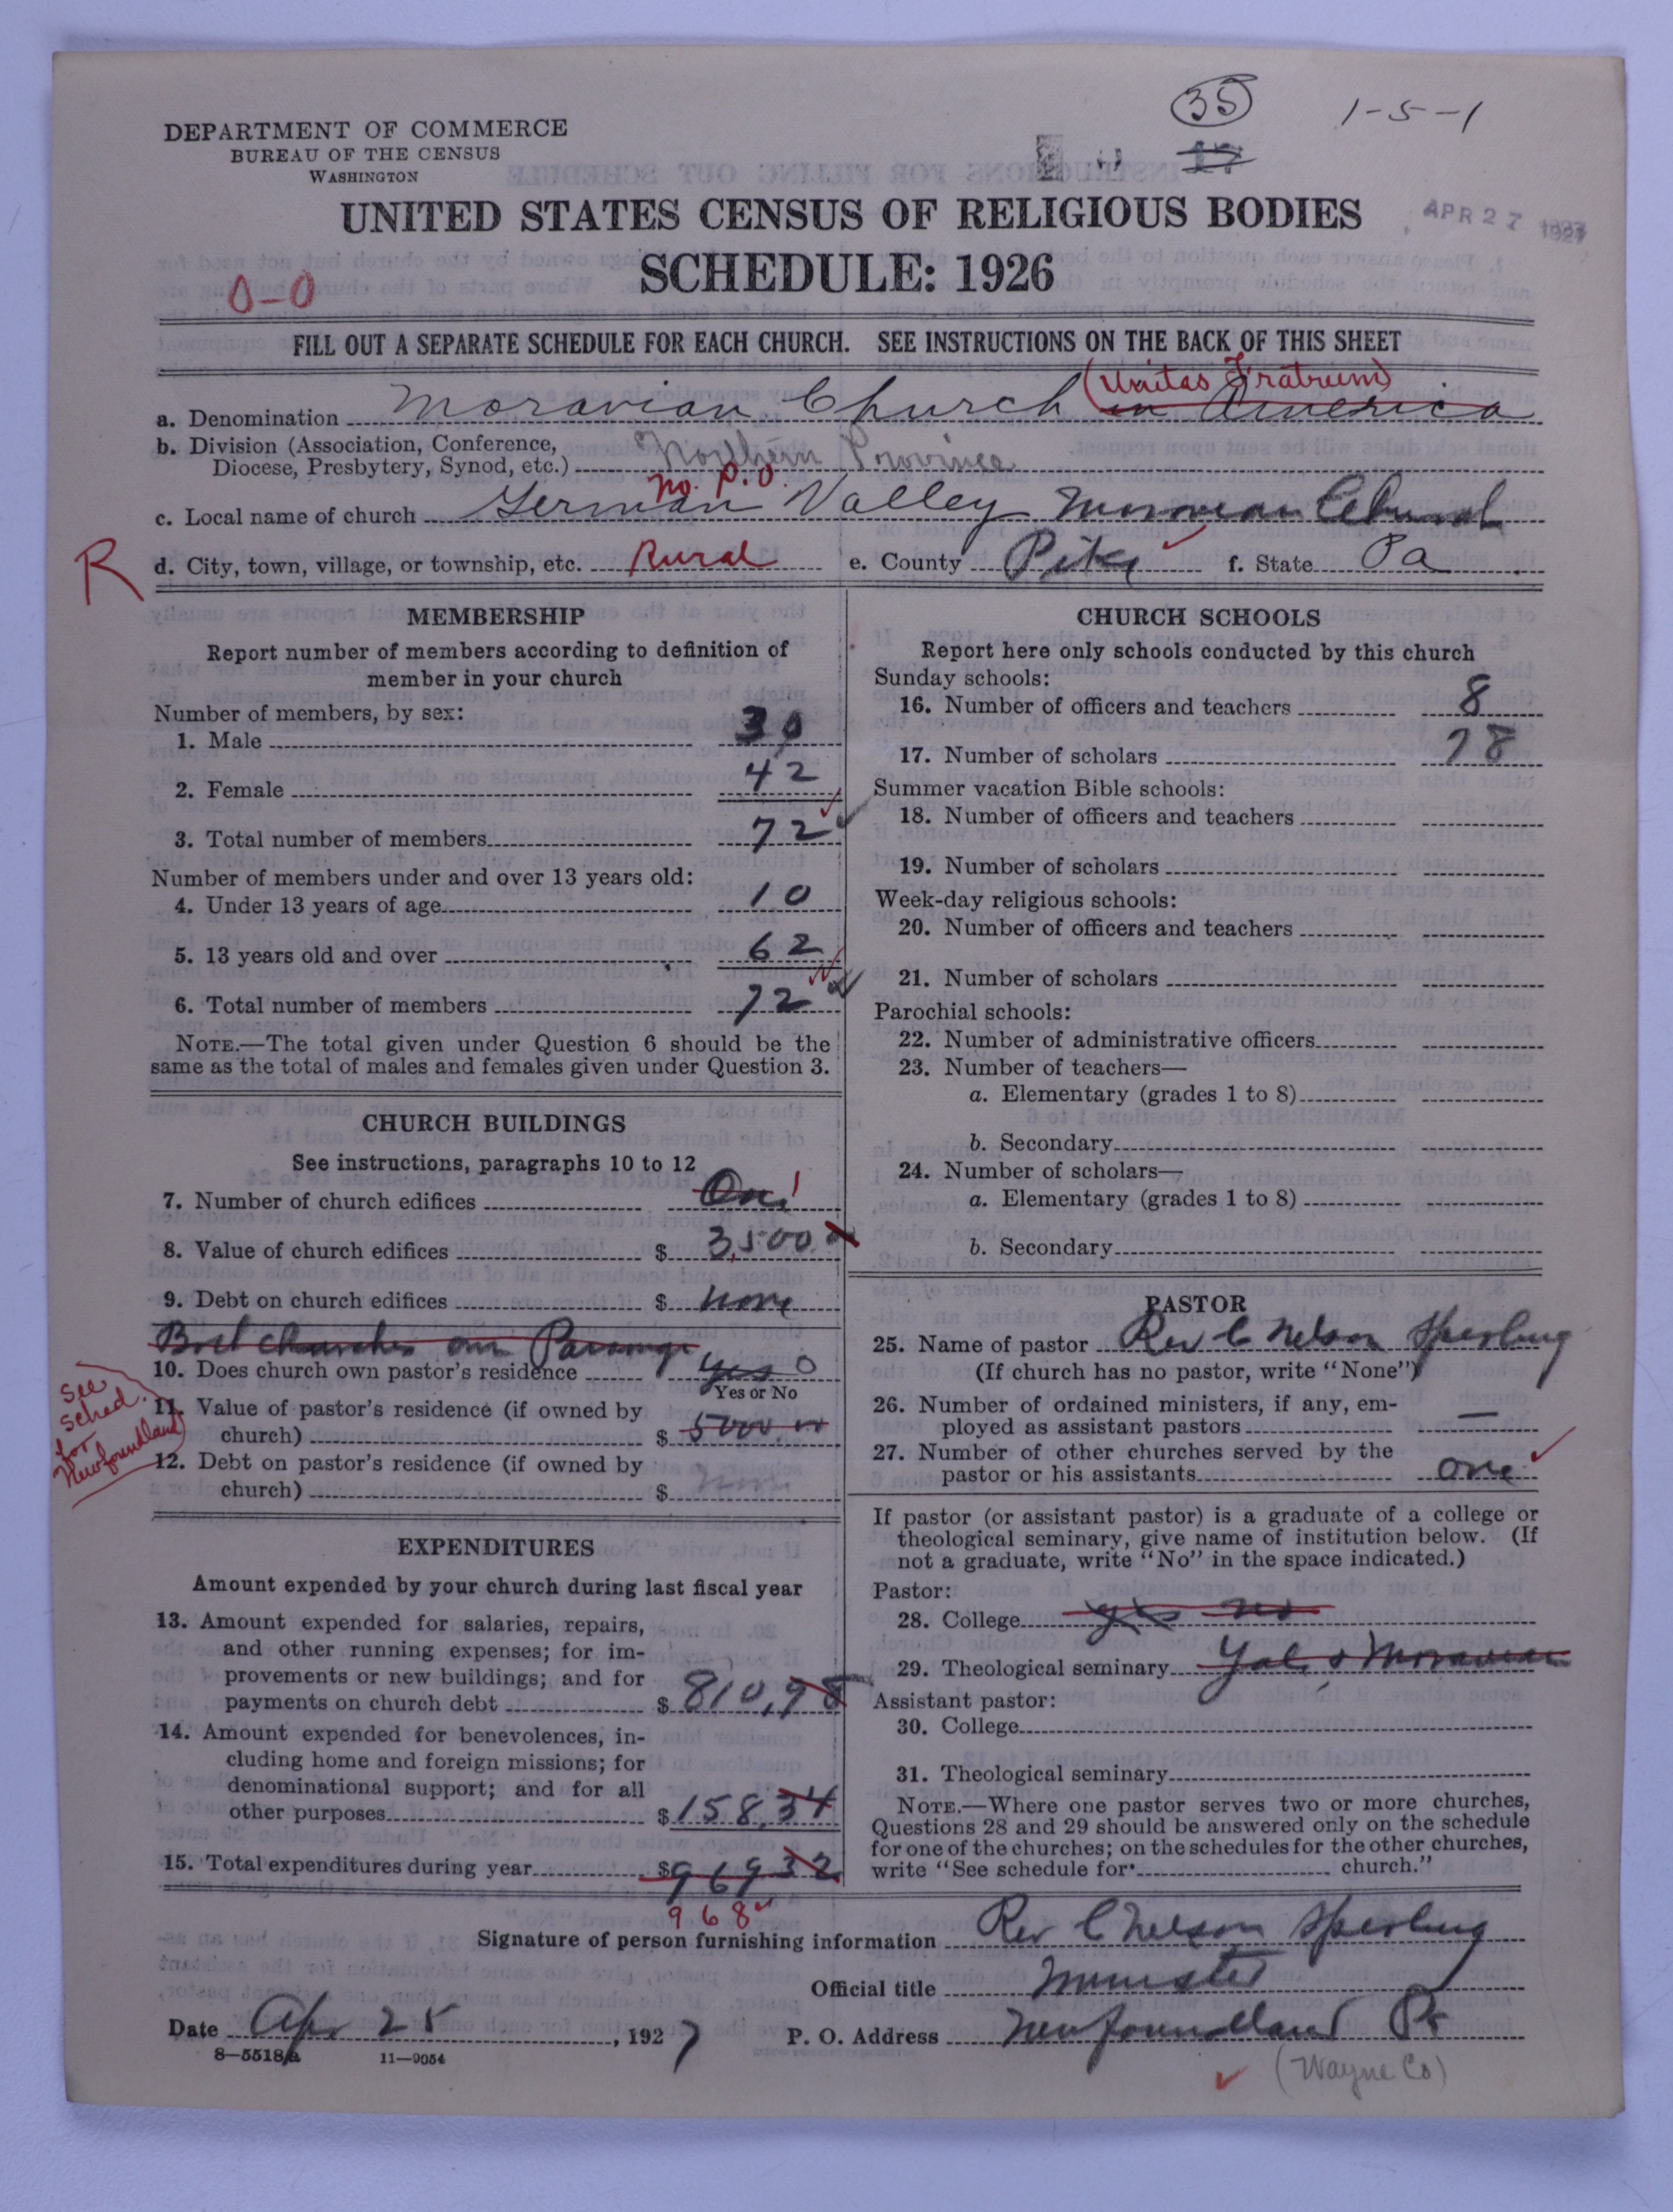 35
1-5-1
17
DEPARTMENT OF COMMERCE
BUREAU OF THE CENSUS
WASHINGTON
UNITED STATES CENSUS OF RELIGIOUS BODIES
APR 27 1927
SCHEDULE: 1926
0-0
FILL OUT A SEPARATE SCHEDULE FOR EACH CHURCH. SEE INSTRUCTIONS ON THE BACK OF THIS SHEET
(Unitas Fratrum)
a. Denomination Moravian Church in America
b. Division (Association, Conference,
Diocese, Presbytery, Synod, etc.) Northern Province
no. P.O.
c. Local name of church German Valley Moravian Church
R
d. City, town, village, or township, etc. Rural e. County Pike f. State Pa
MEMBERSHIP
Report number of members according to definition of
member in your church
Number of members, by sex:
1. Male 30
2. Female 42
3. Total number of members 72
Number of members under and over 13 years old:
4. Under 13 years of age 10
5. 13 years old and over 62
6. Total number of members 72
NOTE.—The total given under Question 6 should be the
same as the total of males and females given under Question 3.
CHURCH BUILDINGS
See instructions, paragraphs 10 to 12
7. Number of church edifices One 1
8. Value of church edifices $ 3,500
9. Debt on church edifices $ none
Both churches own Parsonage
10. Does church own pastor's residence yes 0
Yes or No
See
sched.
for
Newfoundland
11. Value of pastor's residence (if owned by
church) $ 5000.00
12. Debt on pastor's residence (if owned by
church) $ none
EXPENDITURES
Amount expended by your church during last fiscal year
13. Amount expended for salaries, repairs,
and other running expenses; for im-
provements or new buildings; and for
payments on church debt $ 810,98
14. Amount expended for benevolences, in-
cluding home and foreign missions; for
denominational support; and for all
other purposes $ 158.34
15. Total expenditures during year $ 96932
968
CHURCH SCHOOLS
Report here only schools conducted by this church
Sunday schools:
16. Number of officers and teachers 8
17. Number of scholars 78
Summer vacation Bible schools:
18. Number of officers and teachers
19. Number of scholars
Week-day religious schools:
20. Number of officers and teachers
21. Number of scholars
Parochial schools:
22. Number of administrative officers
23. Number of teachers—
a. Elementary (grades 1 to 8)
b. Secondary
24. Number of scholars—
a. Elementary (grades 1 to 8)
b. Secondary
PASTOR
25. Name of pastor Rev C Nelson Sperling
(If church has no pastor, write "None")
26. Number of ordained ministers, if any, em-
ployed as assistant pastors —
27. Number of other churches served by the
pastor or his assistants one
If pastor (or assistant pastor) is a graduate of a college or
theological seminary, give name of institution below. (If
not a graduate, write "No" in the space indicated.)
Pastor:
28. College yes no
29. Theological seminary Yale & Moravian
Assistant pastor:
30. College
31. Theological seminary
NOTE.—Where one pastor serves two or more churches,
Questions 28 and 29 should be answered only on the schedule
for one of the churches; on the schedules for the other churches,
write "See schedule for church."
Signature of person furnishing information Rev C Nelson Sperling
Official title Minister
Date Apr 25, 1927 P. O. Address Newfoundland Pa
8—5518a 11—9054
(Wayne Co)